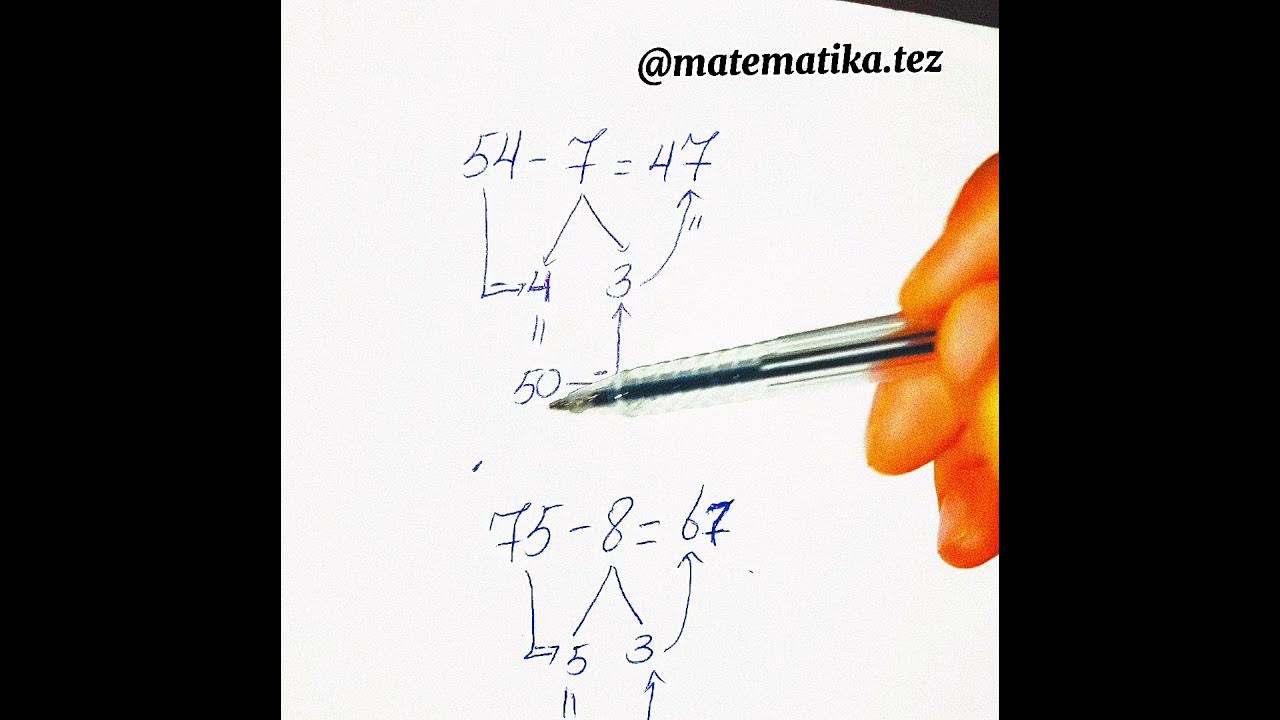 @matematika.tez
54 - 7 = 47
4 3
50 -
75 - 8 = 67
5 3